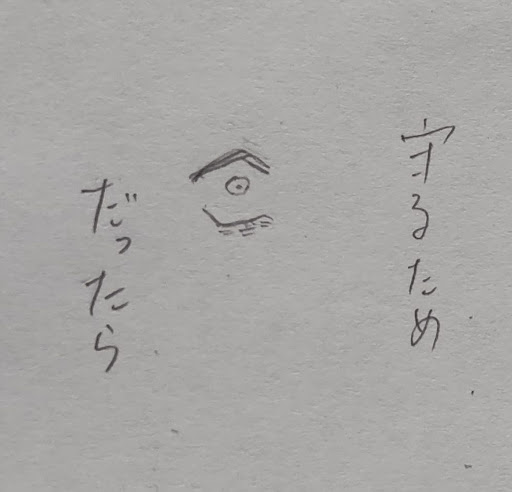 守るため
だったら